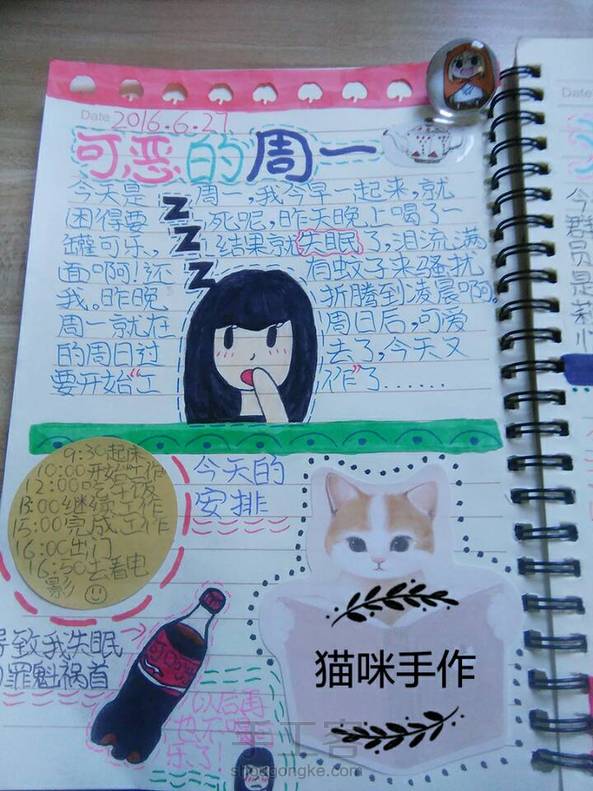 Date 2016.6.27
可恶的周一
今天是周一,我今早一起来,就
困得要死呢,昨天晚上喝了一
罐可乐,结果就失眠了,泪流满
面啊!还有蚊子来骚扰
我。昨晚折腾到凌晨啊。
周一就在周日后,可爱
的周日过去了,今天又
要开始“工作”了......
zzz
9:30起床
10:00开始工作
12:00吃午饭
13:00继续工作
15:00完成工作
16:00出门
16:50去看电
影
今天的
安排
导致我失眠
的罪魁祸首
以后再
也不喝
乐了!
猫咪手作
手工客
shougongke.com
Date